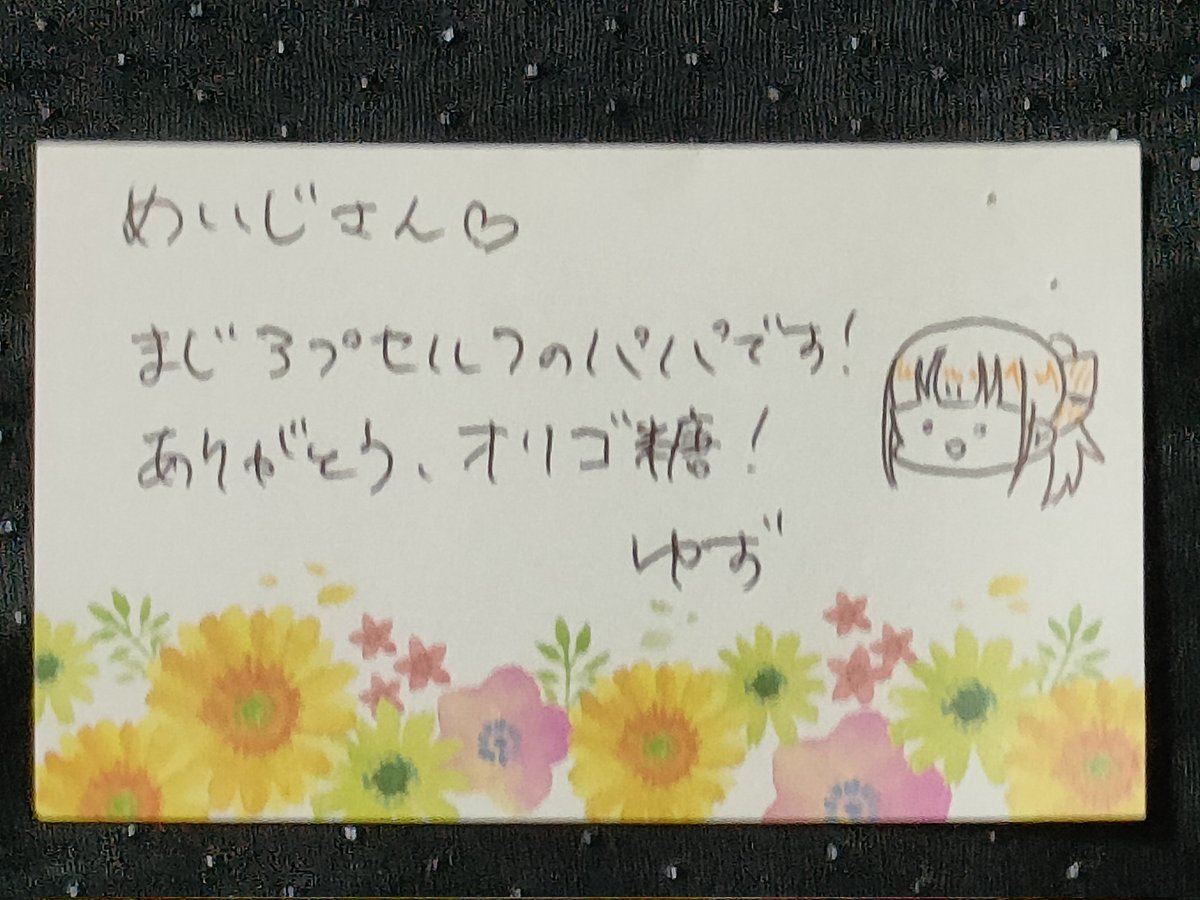 めいじさん♡
まじろプセルフのパパです!
ありがとう、オリゴ糖!
ゆず